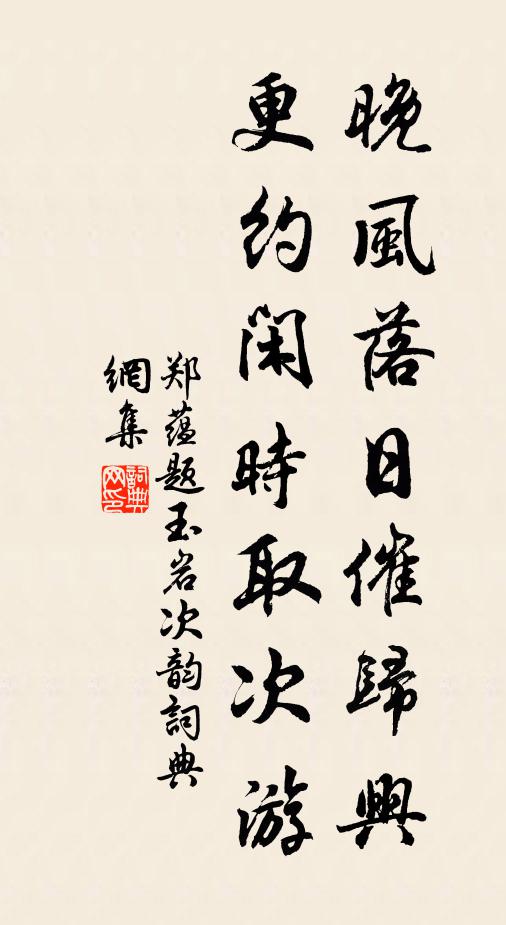 晚風落日催歸興
更約閑時取次游
郑蕴题玉岩次韵詞典
網集
詞典网印